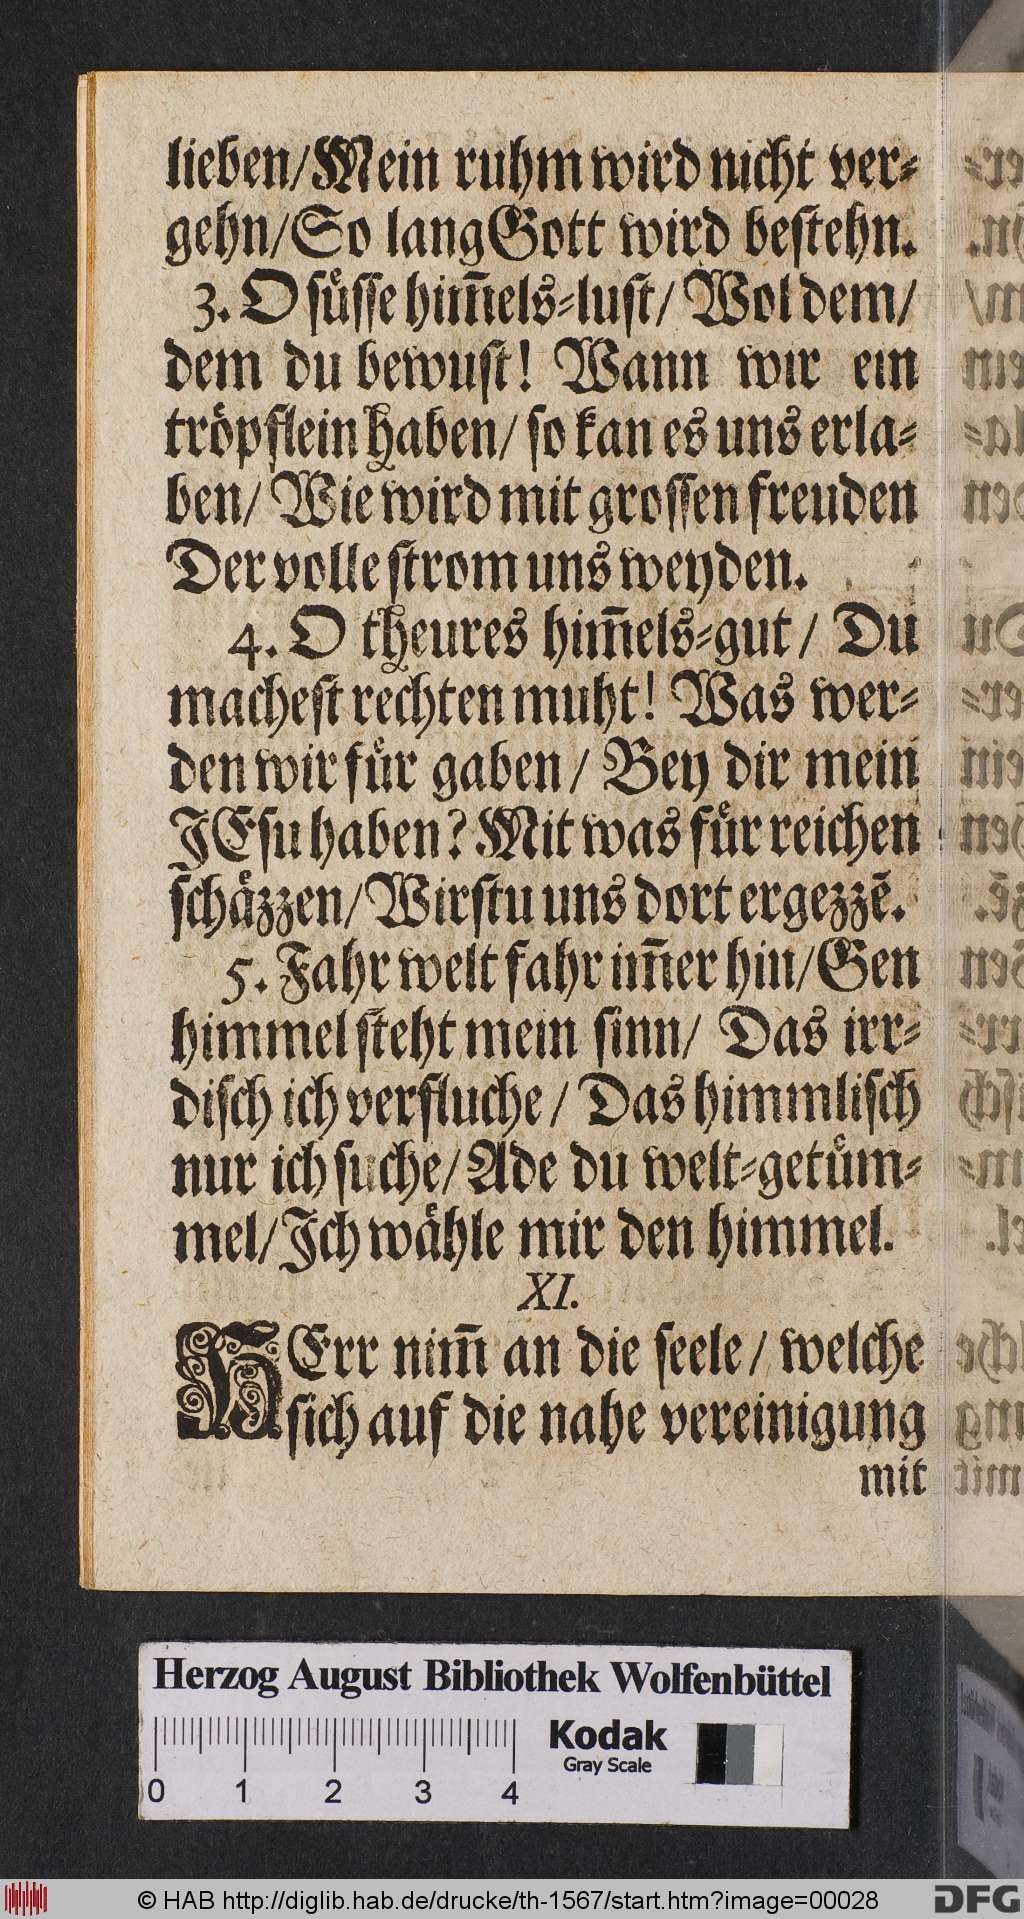 lieben/Mein ruhm wird nicht ver⸗
gehn/So lang Gott wird bestehn.
3. O sůsse him̃els⸗lust/ Wol dem/
dem du bewust! Wann wir ein
trȯpflein haben/ so kan es uns erla⸗
ben/ Wie wird mit grossen freuden
Der volle strom uns weyden.
4. O theures him̃els⸗gut/ Du
machest rechten muht! Was wer⸗
den wir fuͤr gaben/ Bey dir mein
JEsu haben? Mit was fuͤr reichen
schaͤzzen/Wirstu uns dort ergezzẽ.
5. Fahr welt fahr im̃er hin/Gen
himmel steht mein sinn/ Das irr⸗
disch ich verfluche/ Das himmlisch
nur ich suche/Ade du welt⸗getuͤm⸗
mel/Ich waͤhle mir den himmel.
XI.
HErr nim̃ an die seele/ welche
sich auf die nahe vereinigung
mit
Herzog August Bibliothek Wolfenbüttel
Kodak
Gray Scale
0 1 2 3 4
© HAB http://diglib.hab.de/drucke/th-1567/start.htm?image=00028
DFG